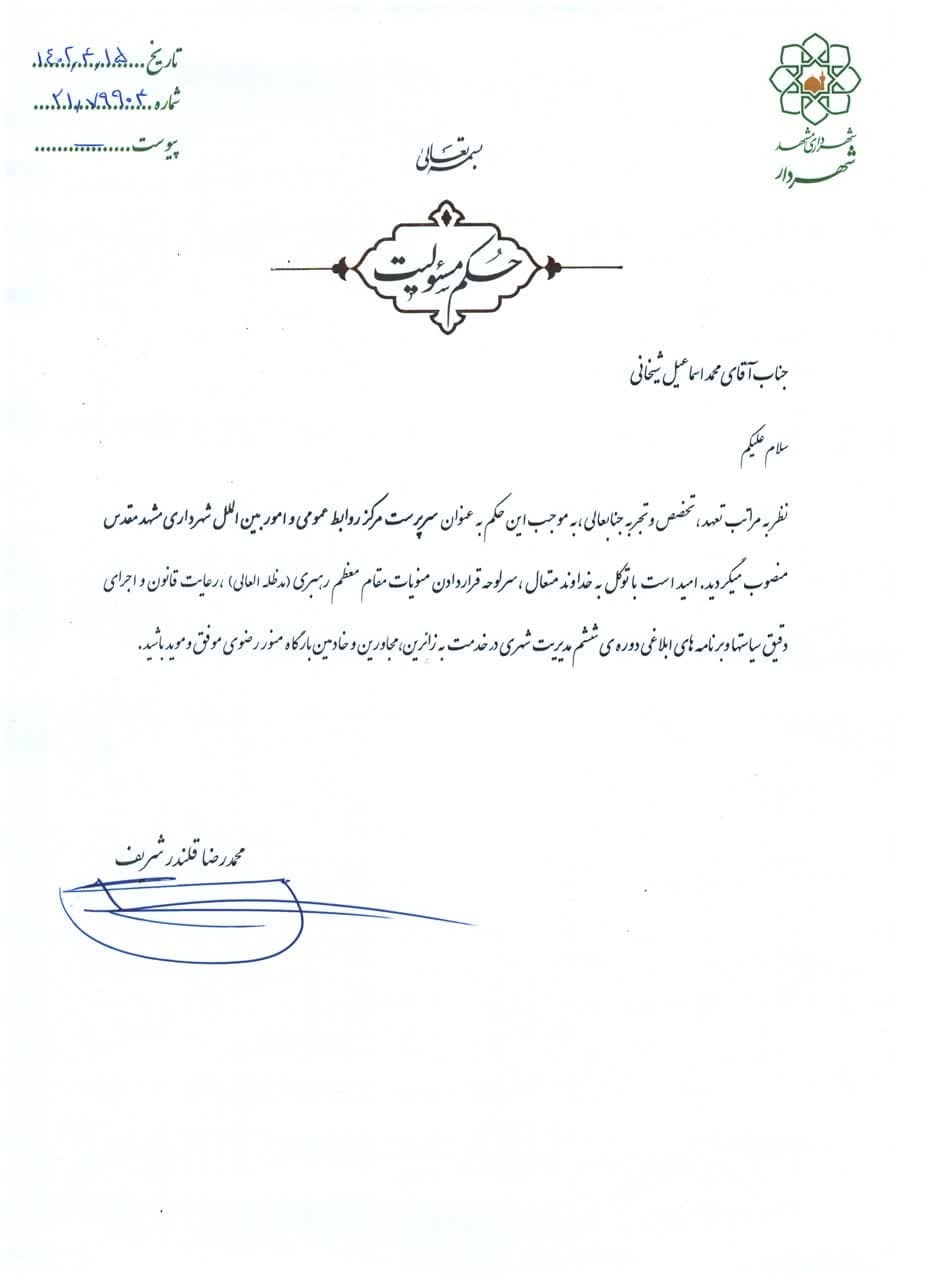 شهرداری مشهد
شهردار
تاریخ ۱۴۰۲,۴,۱۵
شماره ۲۱,۷۹۹۰۴
پیوست —
بسمه تعالی
حکم مسئولیت
جناب آقای محمد اسماعیل شیخانی
سلام علیکم
نظر به مراتب تعهد، تخصص و تجربه جنابعالی، به موجب این حکم به عنوان سرپرست مرکز روابط عمومی و امور بین الملل شهرداری مشهد مقدس
منصوب میگردید. امید است با توکل به خداوند متعال، سرلوحه قرار دادن منویات مقام معظم رهبری (مدظله العالی)، رعایت قانون و اجرای
دقیق سیاستها و برنامه های ابلاغی دوره ی ششم مدیریت شهری در خدمت به زائرین، مجاورین و خادمین بارگاه منور رضوی موفق و موید باشید.
محمدرضا قلندر شریف